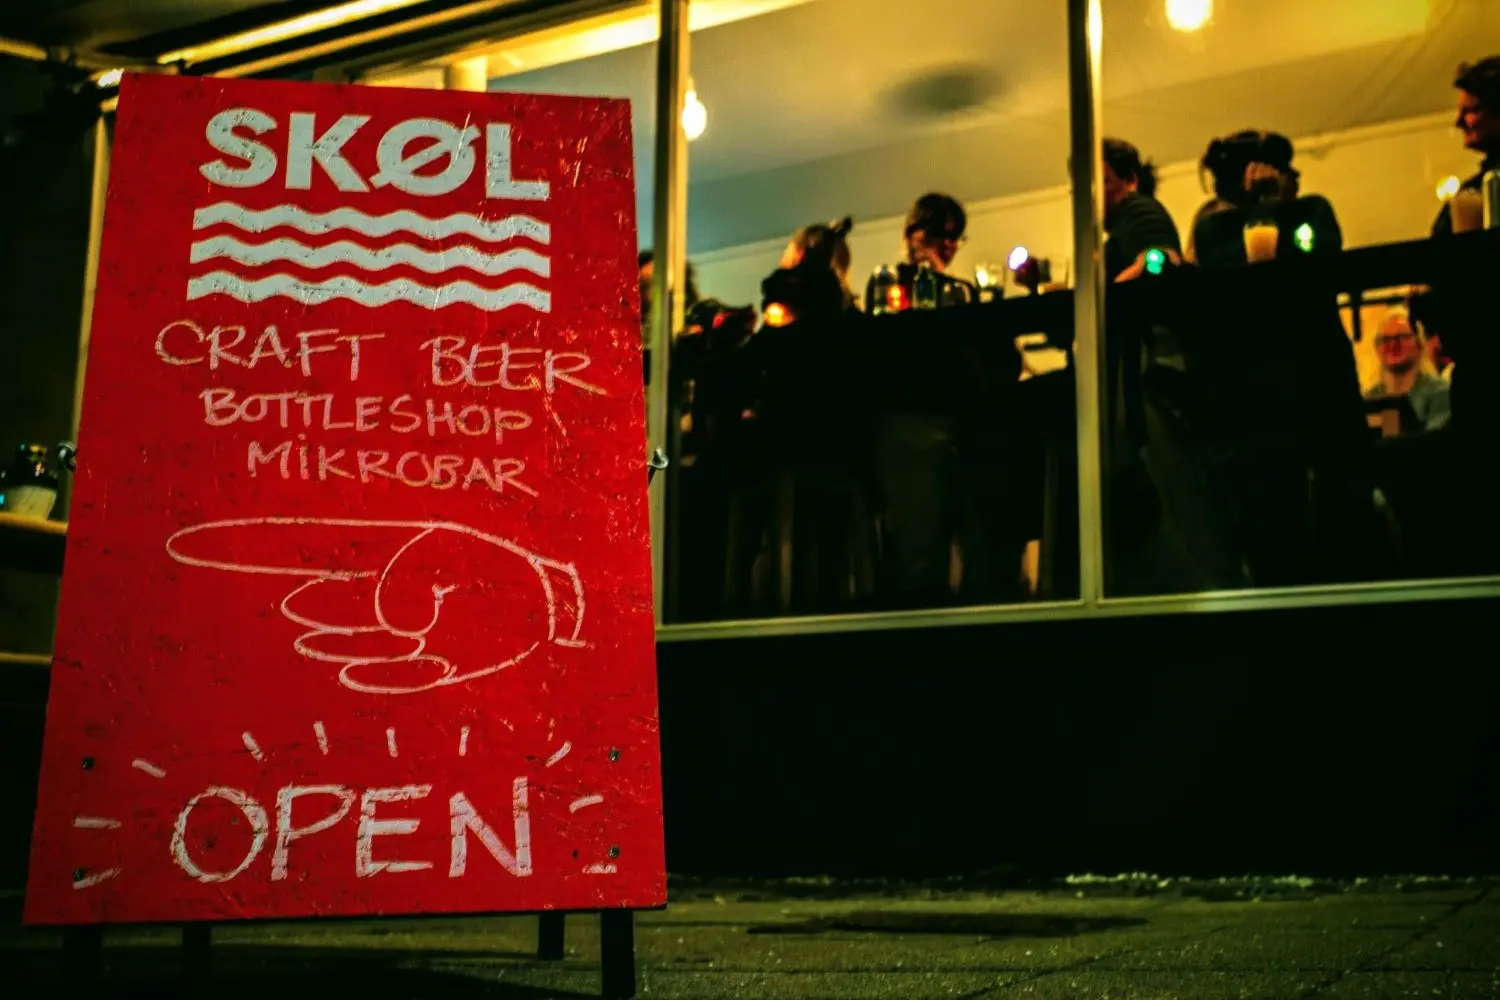 SKØL
CRAFT BEER
BOTTLESHOP
MiKROBAR
OPEN